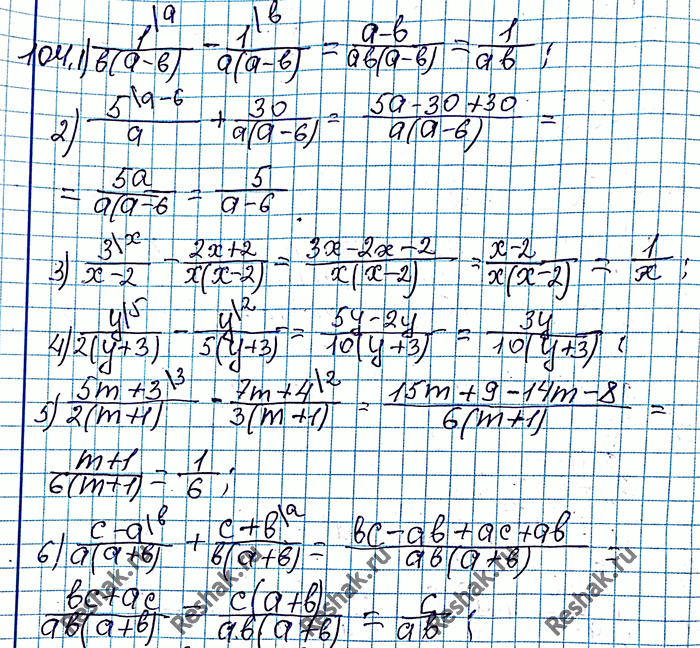 104.1) 1\a/в(a-в) - 1\в/a(a-в) = a-в/aв(a-в) = 1/aв ;
2) 5\a-6/a + 30/a(a-6) = 5a-30+30/a(a-6) =
= 5a/a(a-6 = 5/a-6 .
3) 3\x/x-2 - 2x+2/x(x-2) = 3x-2x-2/x(x-2) = x-2/x(x-2) = 1/x ;
4) y\5/2(y+3) - y\2/5(y+3) = 5y-2y/10(y+3) = 3y/10(y+3) ;
5) 5m+3\3/2(m+1) - 7m+4\2/3(m+1) = 15m+9-14m-8/6(m+1) =
m+1/6(m+1) = 1/6 ;
6) c-a\в/a(a+в) + c+в\a/в(a+в) = вc-aв+ac+aв/aв(a+в) =
вc+ac/aв(a+в) = c(a+в)/aв(a+в) = c/aв ;
Reshak.ru Reshak.ru Reshak.ru Reshak.ru